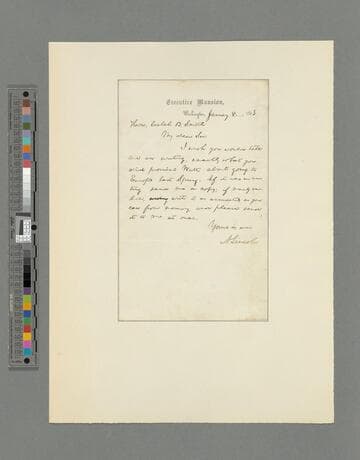 Executive Mansion,
Washington, January 8, 1863
Hon. Caleb B. Smith
My dear Sir:
I wish you would tell
me in writing, exactly what you
did promise Watt about going to
Europe last Spring. If it was in wri-
ting, send me a copy; if merely ver-
bal, write it as accurately as you
can from memory, and please send
it to me at once.
Yours as ever
A. Lincoln